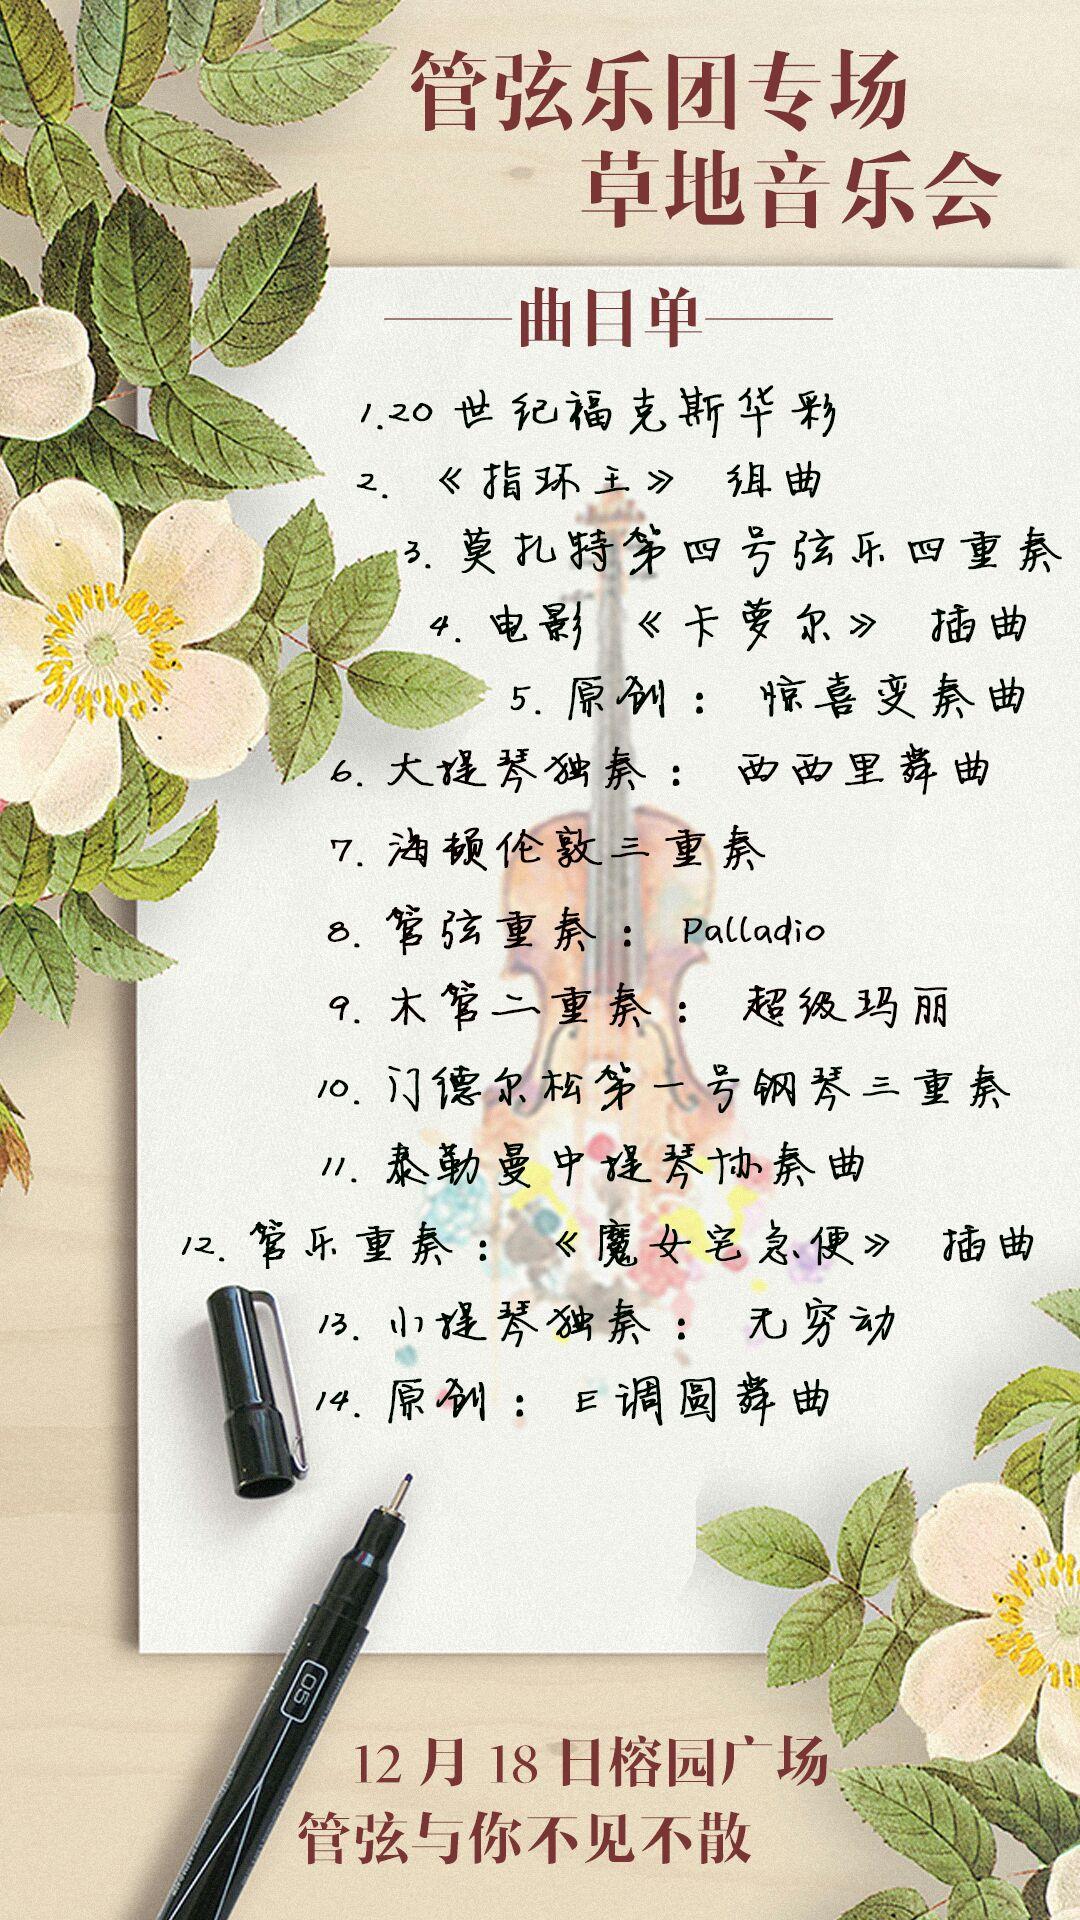 管弦乐团专场
草地音乐会
曲目单
1.20世纪福克斯华彩
2. 《指环王》 组曲
3. 莫扎特第四号弦乐四重奏
4. 电影 《卡萝尔》 插曲
5. 原创： 惊喜变奏曲
6. 大提琴独奏： 西西里舞曲
7. 海顿伦敦三重奏
8. 管弦重奏： Palladio
9. 木管二重奏： 超级玛丽
10. 门德尔松第一号钢琴三重奏
11. 泰勒曼中提琴协奏曲
12. 管乐重奏： 《魔女宅急便》 插曲
13. 小提琴独奏： 无穷动
14. 原创： E调圆舞曲
05
12月18日榕园广场
管弦与你不见不散